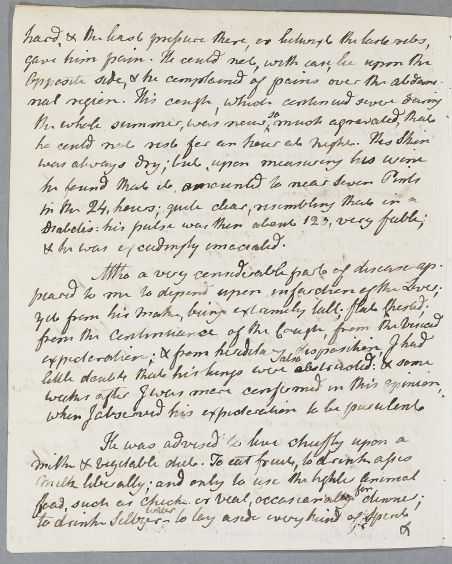 hard, & the least pressure there, or betwixt the last ribs,
gave him pain. He could not, with ease, lie upon the
Opposite side, & he complained of pains over the abdomi-
nal region. His cough, which continued severe during
the whole summer, was now, so much agravated, that
he could not rest for an hour at night. His Skin
was always dry; but, upon measuring his urine
he found that it amounted to near seven Pints
in the 24, hours; quite clear, resembling that in a
Diabetis: his pulse was then about 123, very feeble;
& he was exceedingly emaciated.
Altho a very considerable part of disease ap-
peared to me to depend upon infarction of the Liver;
yet from his make, being extremely tall, flat chested;
from the Continuance of the Cough, from the Viscid
expectoration; & from hereditary disposition, I had
little doubt that his lungs were also obstructed: & some
weeks after I was more confirmed in this opinion,
when I observed his expectoration to be purulent
He was advised to live chiefly upon a
milk & vegetable diet. To eat fruit, to drink asses
milk liberally; and only to use the lighter animal
food, such as Chick or veal, occasionally for dinner;
to drink Seltzer water to lay aside every kind of
&